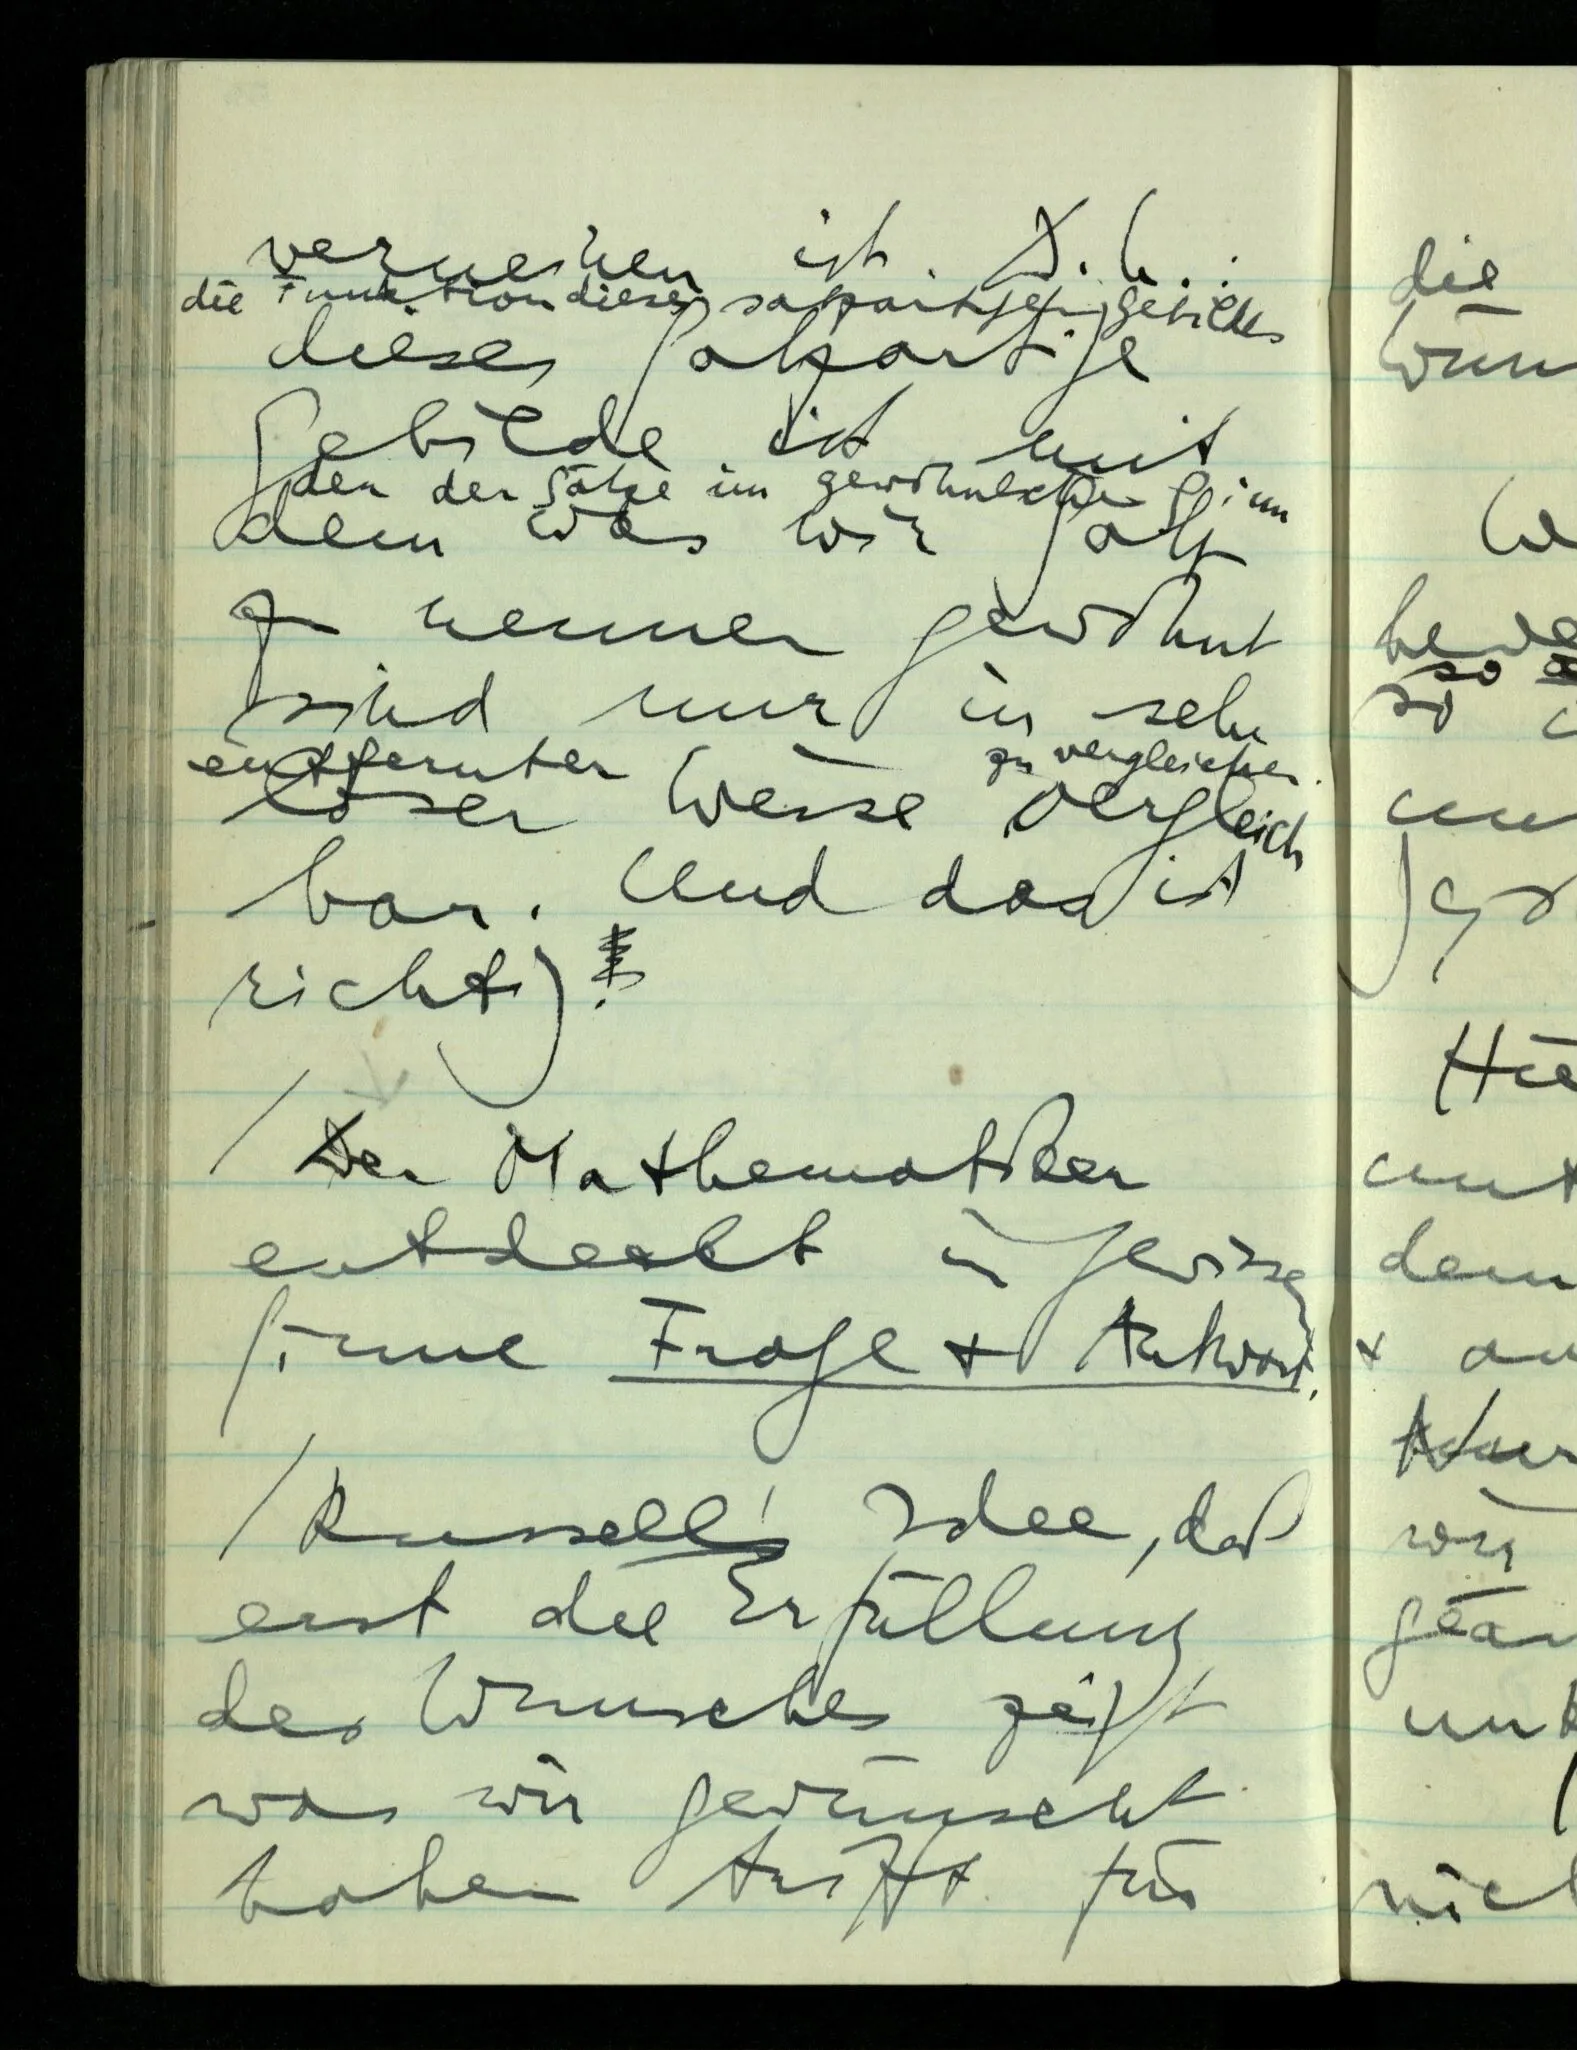 verneinen ist. D.h.:
die Funktion dieser satzartigen Gebilde
dieses satzartige
Gebilde ist mit
den der Sätze im gewöhnlichen Sinn
dem was wir Satz
zu nennen gewöhnt
sind nur in sehr
entfernter zu vergleichen.
loser Weise vergleich
bar. Und das ist
richtig!
/ Der Mathematiker
entdeckt in gewissem
Sinne Frage + Antwort.
/ Russell's Idee, daß
erst die Erfüllung
des Wunsches zeigt
was wir gewünscht
haben trifft für
die
Hie
dem
wir